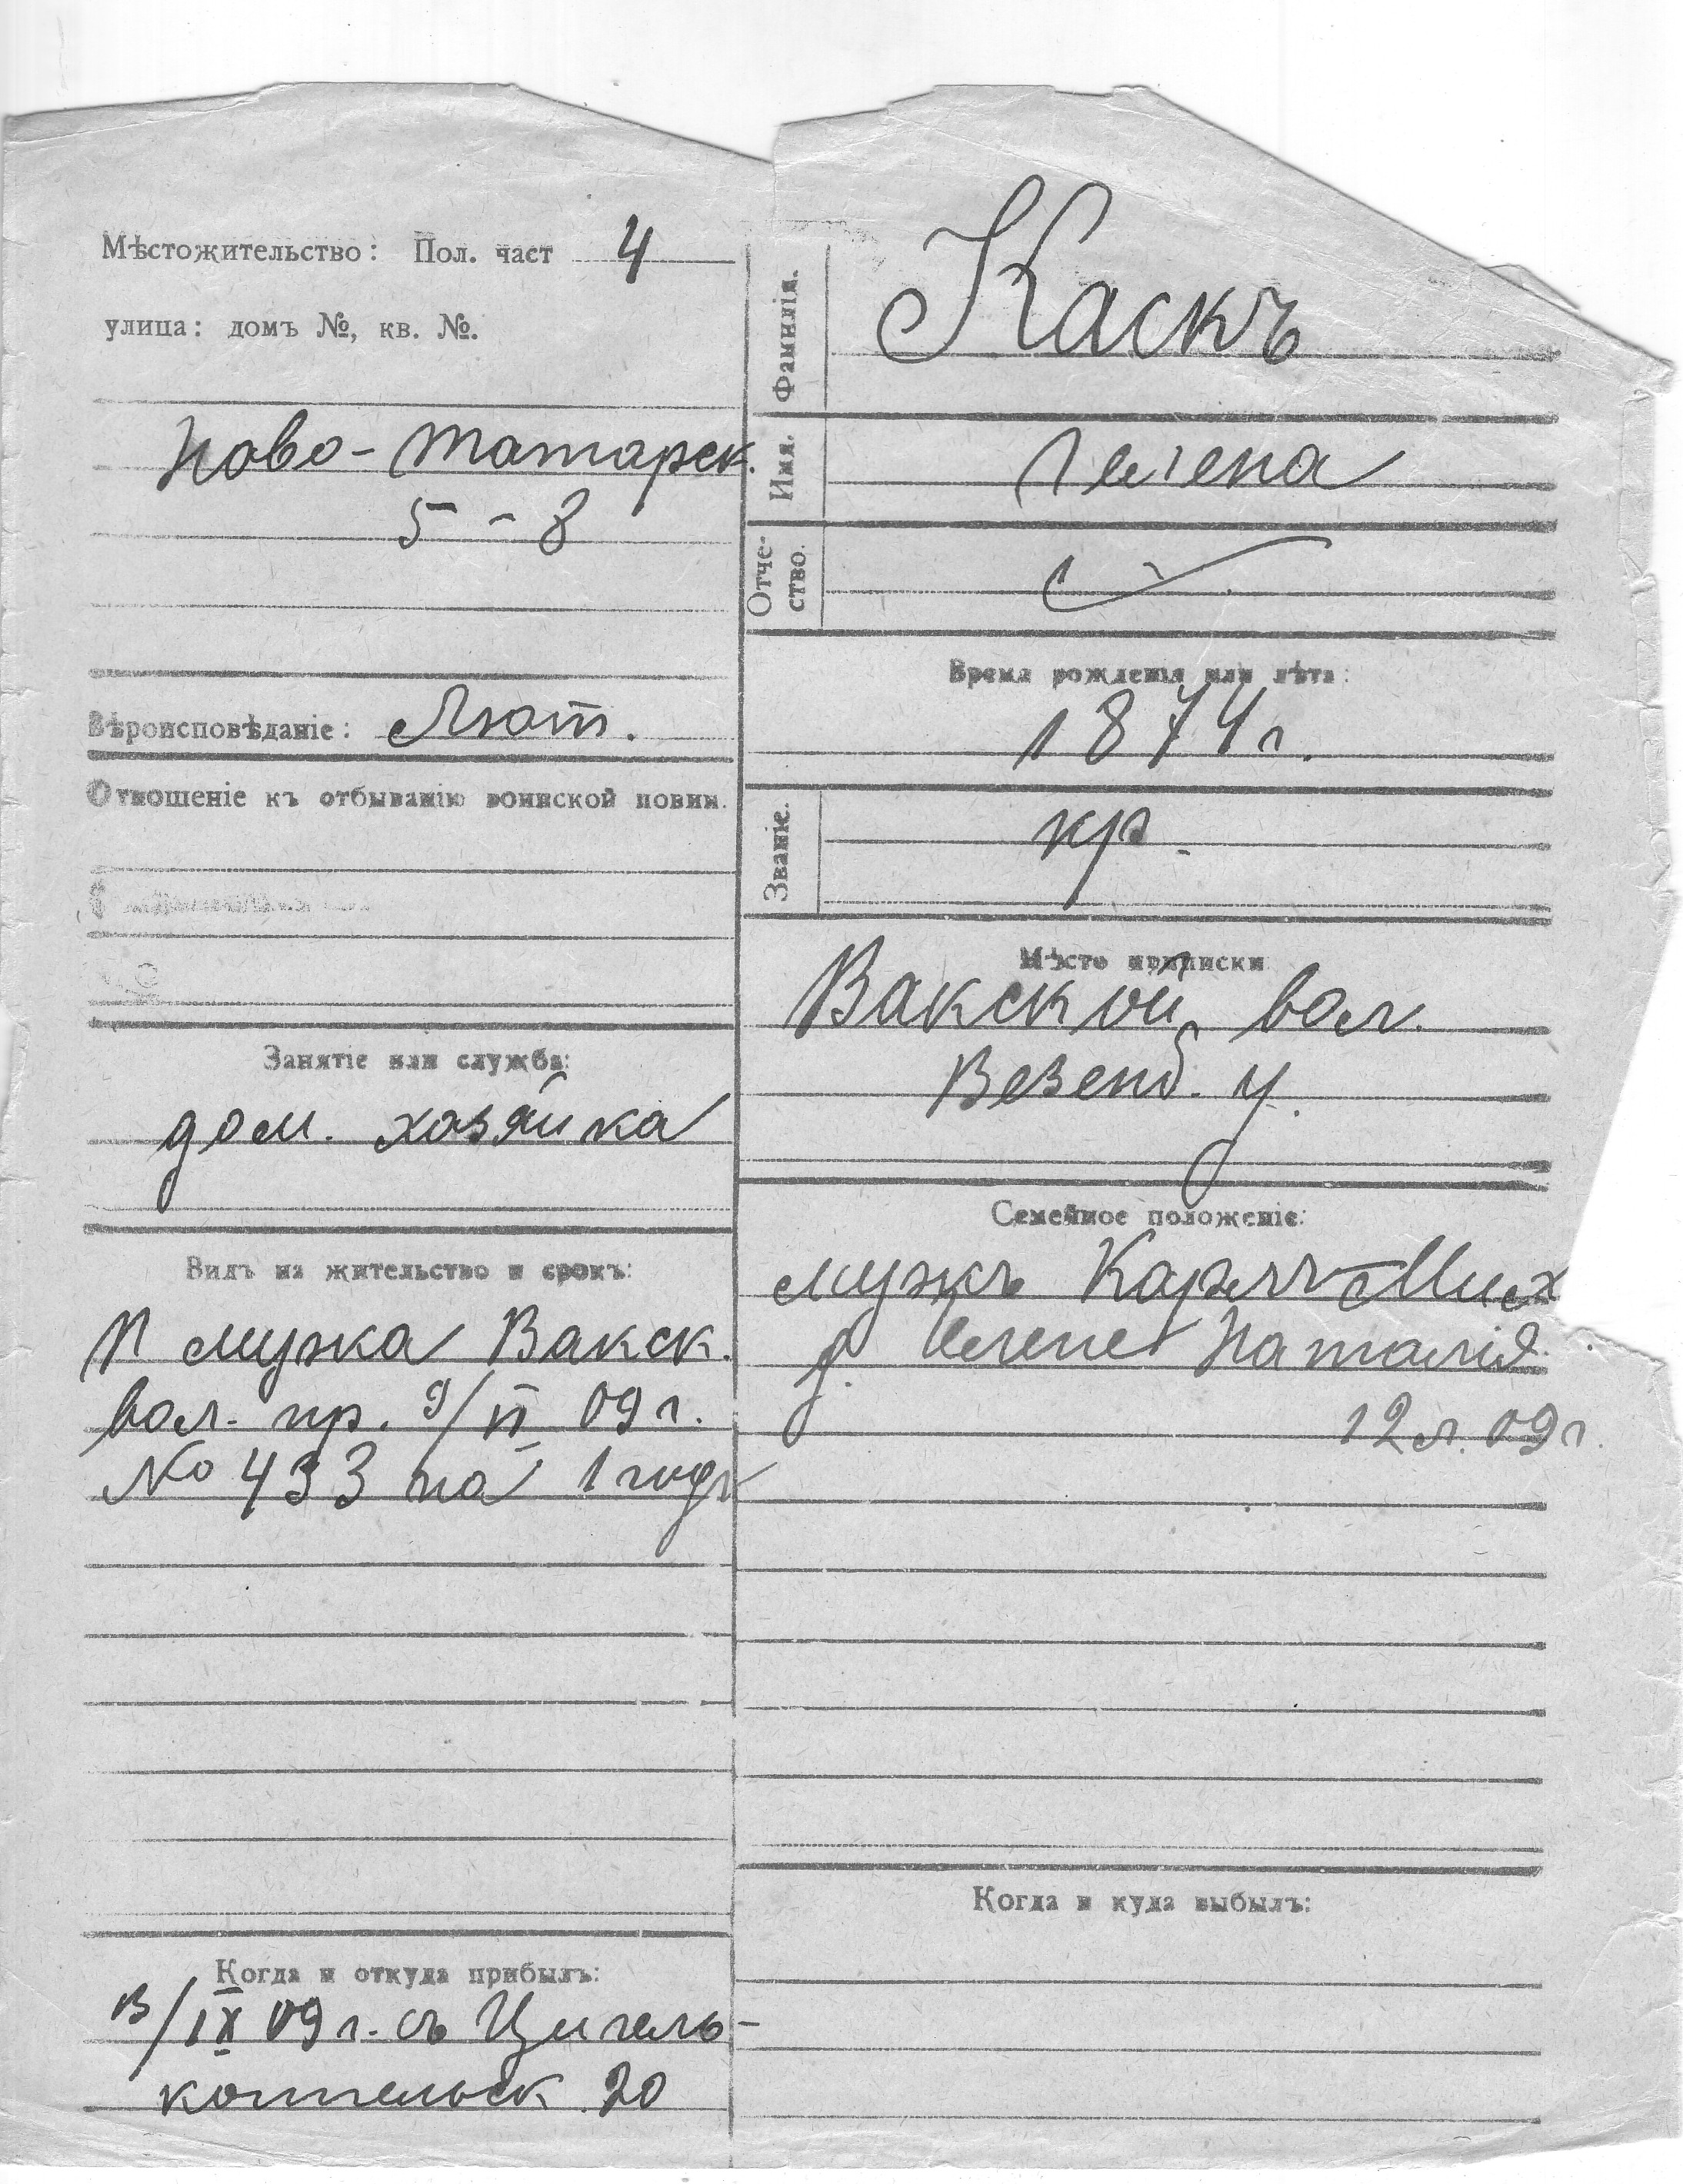 Мѣстожительство: Пол. част 4
улица: домъ №, кв. №.
Ново-Татарск.
5 - 8
Вѣроисповѣданіе: Лют.
Отношеніе къ отбыванію воинской повин.
Занятіе или служба:
дом. хозяйка
Видъ на жительство и срокъ:
П мужа Вакск.
вол. пр. 9/II 09 г.
№ 433 на 1 годъ
Когда и откуда прибылъ:
13/IX 09 г. съ Цигель-
коппельск 20
Фамилія. Каскъ
Имя. Гелена
Отче-
ство.
Время рожденія или лѣта:
1874 г.
Званіе. кр.
Мѣсто приписки
Вакской вол.
Везенб. у.
Семейное положеніе:
мужъ Карлъ-Мих
д. Наталія
12 л. 09 г.
Когда и куда выбылъ: